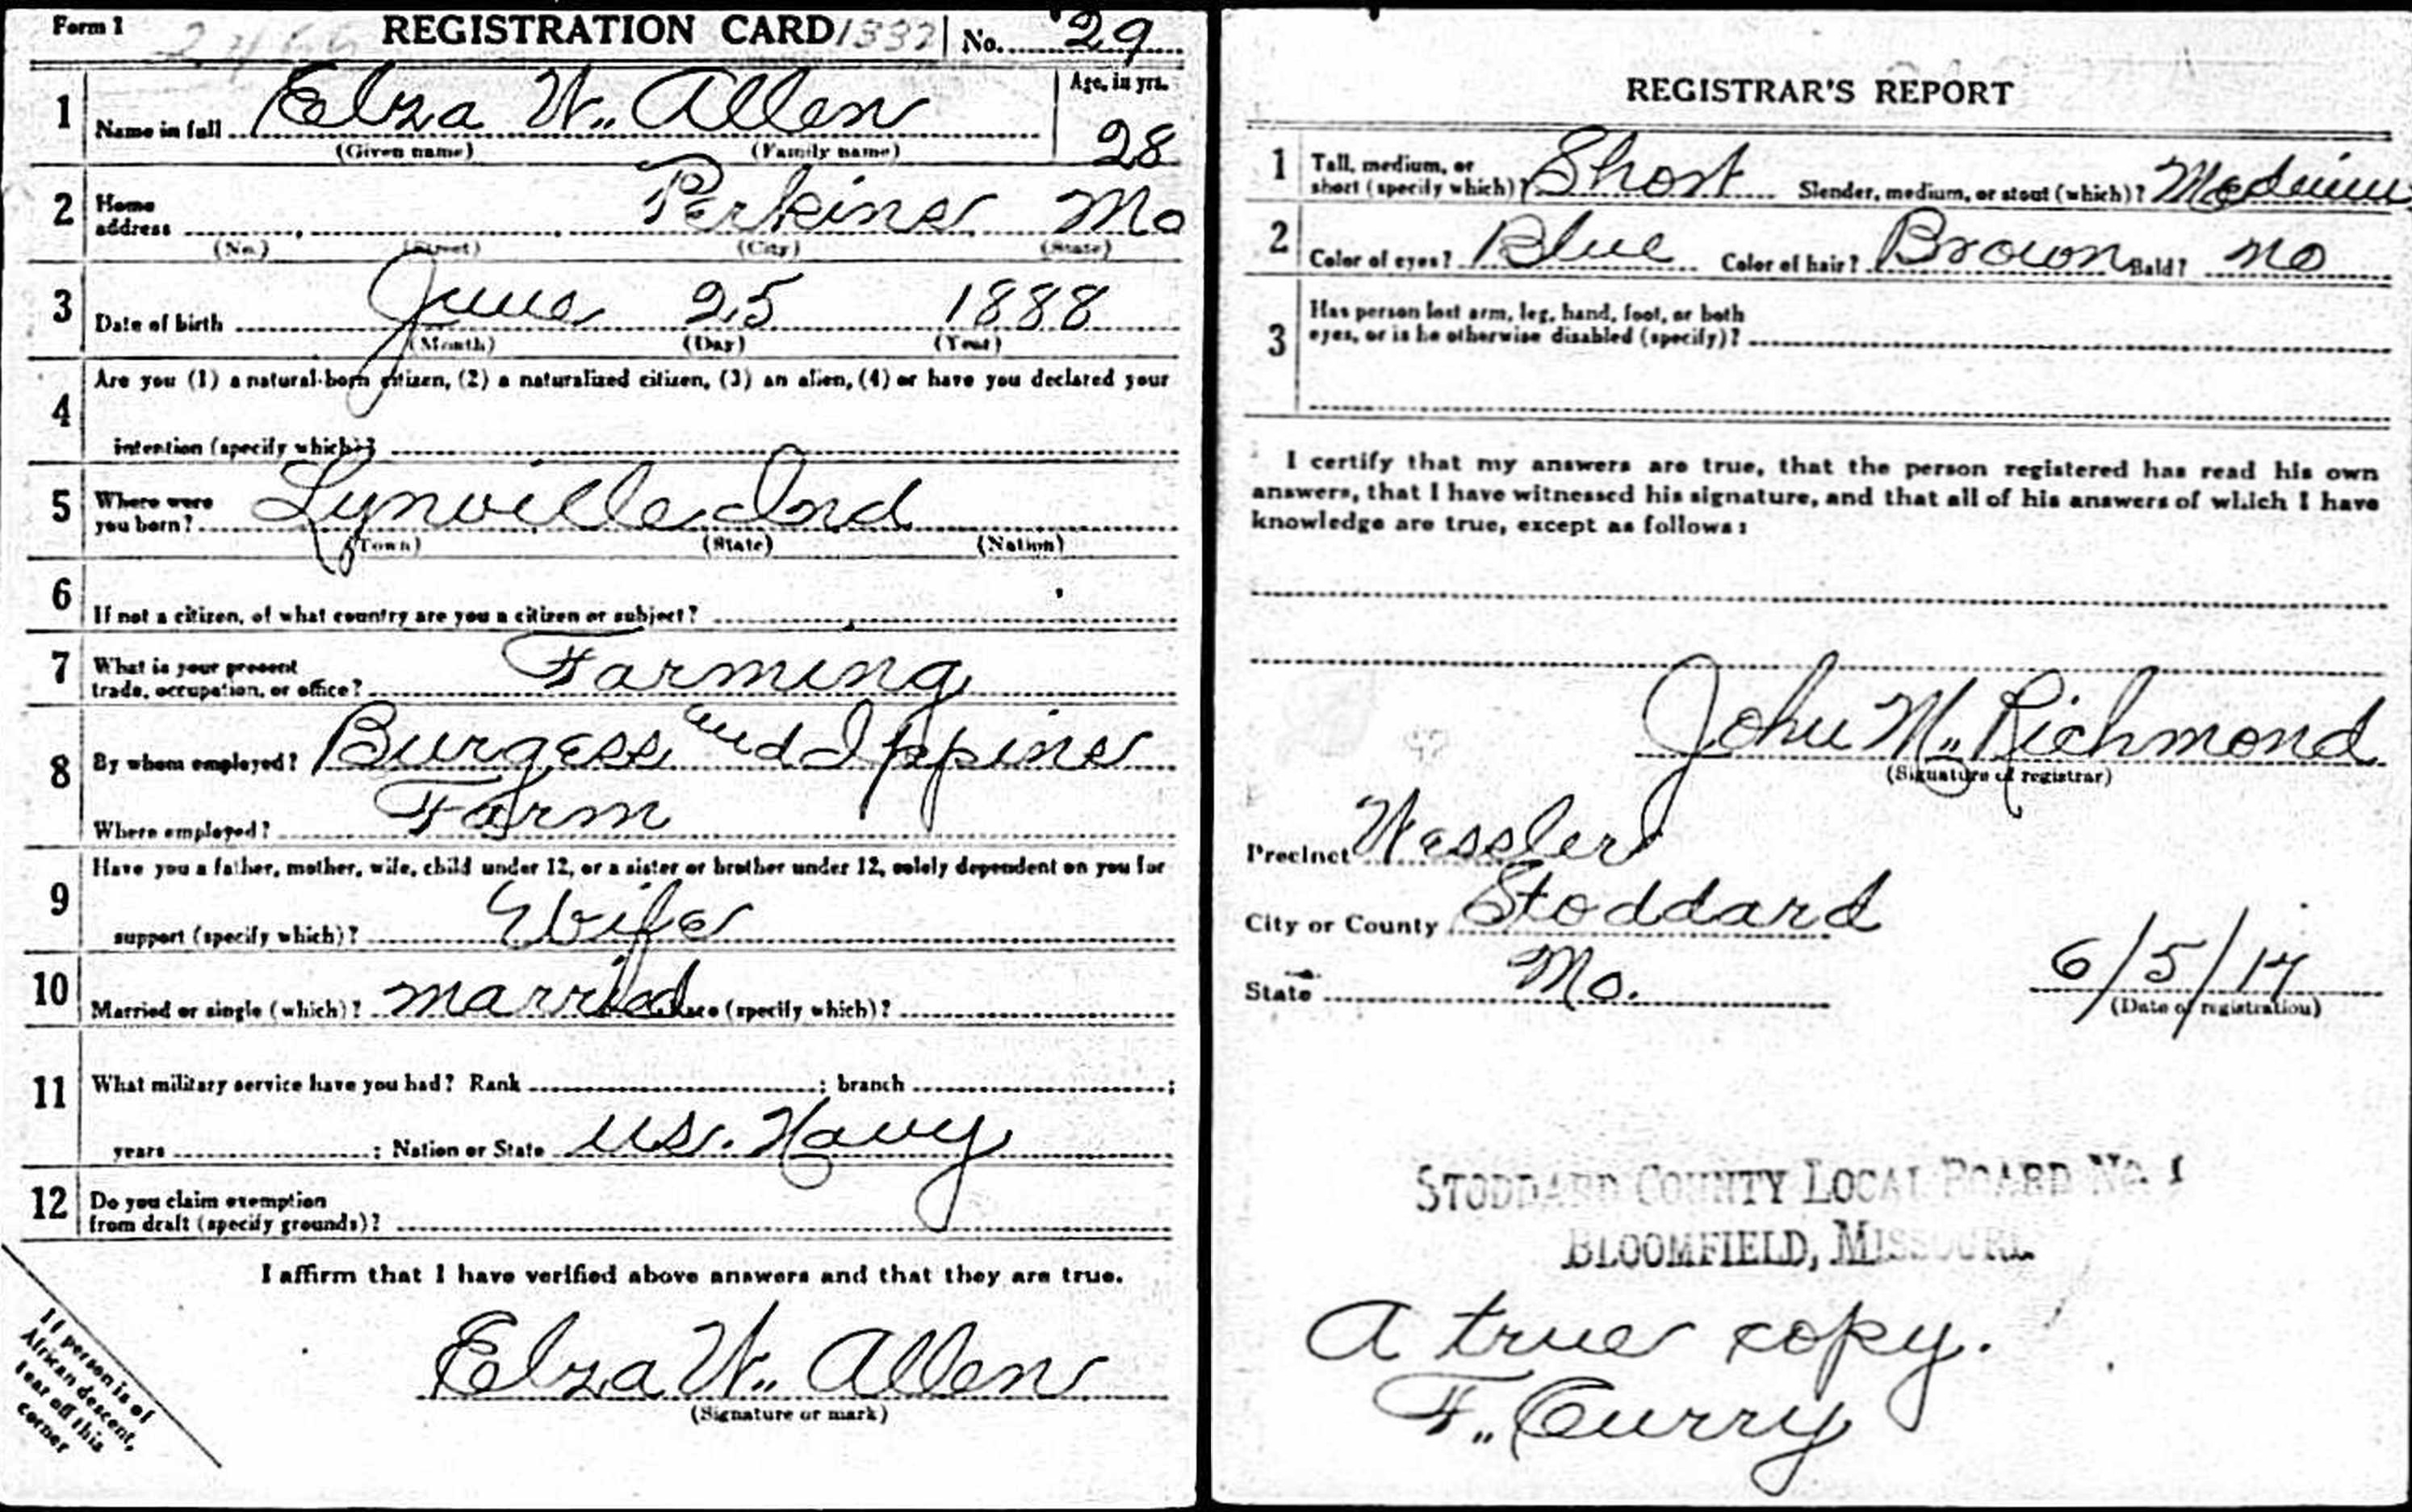 Form 1 REGISTRATION CARD 1332 No. 29
1 Name in full Elza W. Allen Age, in yrs.
(Given name) (Family name) 28
2 Home address Perkins Mo
(No.) (Street) (City) (State)
3 Date of birth June 25 1888
(Month) (Day) (Year)
4 Are you (1) a natural-born citizen, (2) a naturalized citizen, (3) an alien, (4) or have you declared your
intention (specify which)?
5 Where were you born? Lynville Ind
(Town) (State) (Nation)
6 If not a citizen, of what country are you a citizen or subject?
7 What is your present trade, occupation, or office? Farming
8 By whom employed? Burgess and Ippine
Where employed? Farm
9 Have you a father, mother, wife, child under 12, or a sister or brother under 12, solely dependent on you for
support (specify which)? Wife
10 Married or single (which)? married Race (specify which)?
11 What military service have you had? Rank ; branch ;
years ; Nation or State U.S. Navy
12 Do you claim exemption
from draft (specify grounds)?
I affirm that I have verified above answers and that they are true.
Elza W. Allen
(Signature or mark)
If person is of
African descent,
tear off this
corner
REGISTRAR'S REPORT
1 Tall, medium, or short (specify which)? Short Slender, medium, or stout (which)? Medium
2 Color of eyes? Blue Color of hair? Brown Bald? no
3 Has person lost arm, leg, hand, foot, or both
eyes, or is he otherwise disabled (specify)?
I certify that my answers are true, that the person registered has read his own
answers, that I have witnessed his signature, and that all of his answers of which I have
knowledge are true, except as follows:
John M. Richmond
(Signature of registrar)
Precinct Wessler
City or County Stoddard
State Mo. 6/5/17
(Date of registration)
STODDARD COUNTY LOCAL BOARD No. 1
BLOOMFIELD, MISSOURI.
A true copy.
F. Curry